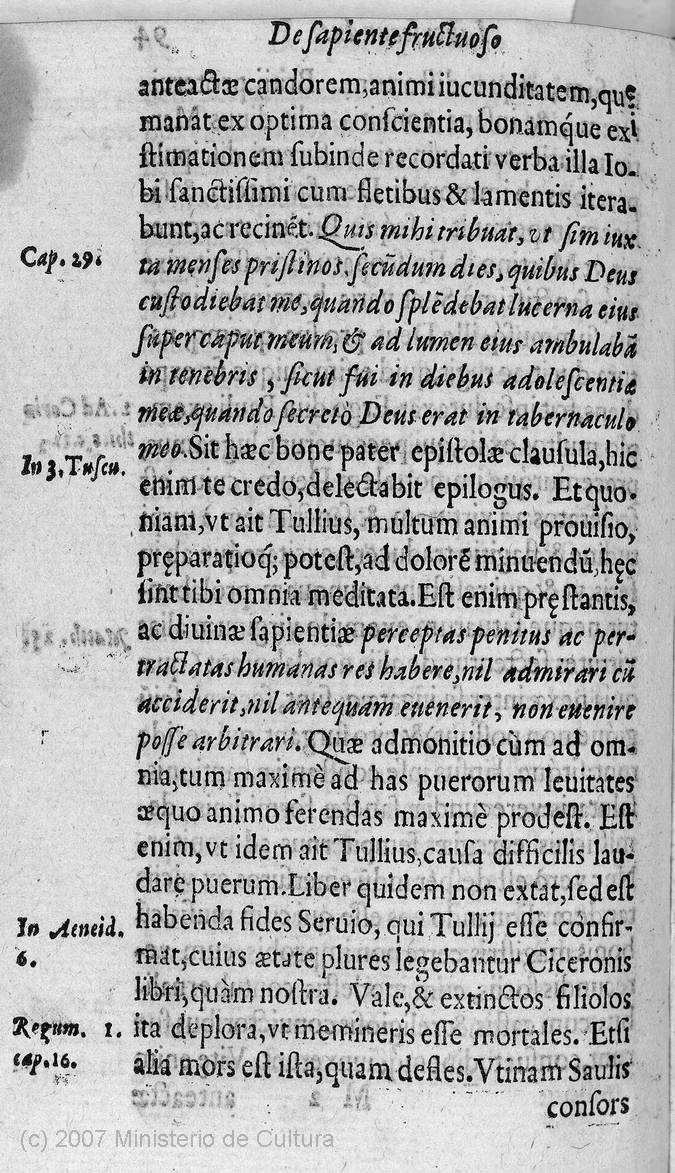 De sapiente fructuoso
anteactæ candorem, animi iucunditatem, quę
manāt ex optima conscientia, bonamq́ue exi
stimationem subinde recordati verba illa Io-
bi sanctissimi cum fletibus & lamentis itera-
bunt, ac recinēt. Quis mihi tribuat, vt sim iux
Cap. 29.
ta menses pristinos, secūdum dies, quibus Deus
custodiebat me, quando splēdebat lucerna eius
super caput meum, & ad lumen eius ambulabā
in tenebris, sicut fui in diebus adolescentiæ
meæ, quando secretò Deus erat in tabernaculo
meo. Sit hæc bone pater epistolæ clausula, hic
In 3. Tuscu.
enim te credo, delectabit epilogus. Et quo-
niam, vt ait Tullius, multum animi prouisio,
pręparatioq́; potest, ad dolorē minuendū, hęc
sint tibi omnia meditata. Est enim pręstantis,
ac diuinæ sapientiæ perceptas penitus ac per-
tractatas humanas res habere, nil admirari cū
acciderit, nil antequam euenerit, non euenire
posse arbitrari. Quæ admonitio cùm ad om-
nia, tum maximè ad has puerorum leuitates
æquo animo ferendas maximè prodest. Est
enim, vt idem ait Tullius, causa difficilis lau-
dare puerum. Liber quidem non extat, sed est
habenda fides Seruio, qui Tullij esse confir-
In Aeneid.
6.
mat, cuius ætate plures legebantur Ciceronis
libri, quàm nostra. Vale, & extinctos filiolos
ita deplora, vt memineris esse mortales. Etsi
Regum. 1.
cap. 16.
alia mors est ista, quam defles. Vtinam Saulis
consors
(c) 2007 Ministerio de Cultura